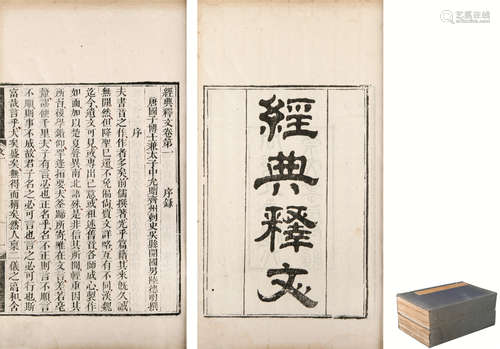 經典釋文卷第一 序錄
唐國子博士兼太子中允贈齊州刺史吳縣開國男陸德明撰
序
夫書音之作作者多矣前儒撰著光乎篇籍其來既久誠
無閒然但降聖已還不免偏尚質文詳略互有不同漢魏
迄今遺文可見或專出己意或祖述舊音各師成心製作
如面加以楚夏聲異南北語殊是非信其所聞輕重因其
所習後學鑽仰罕逢指要夫筌蹄所寄唯在文言差若毫
釐謬便千里夫子有言必也正名乎名不正則言不順言
不順則事不成故君子名之必可言也言之必可行也斯
富哉言乎大矣盛矣無得而稱矣然人稟二儀之淳和含
經典釋文